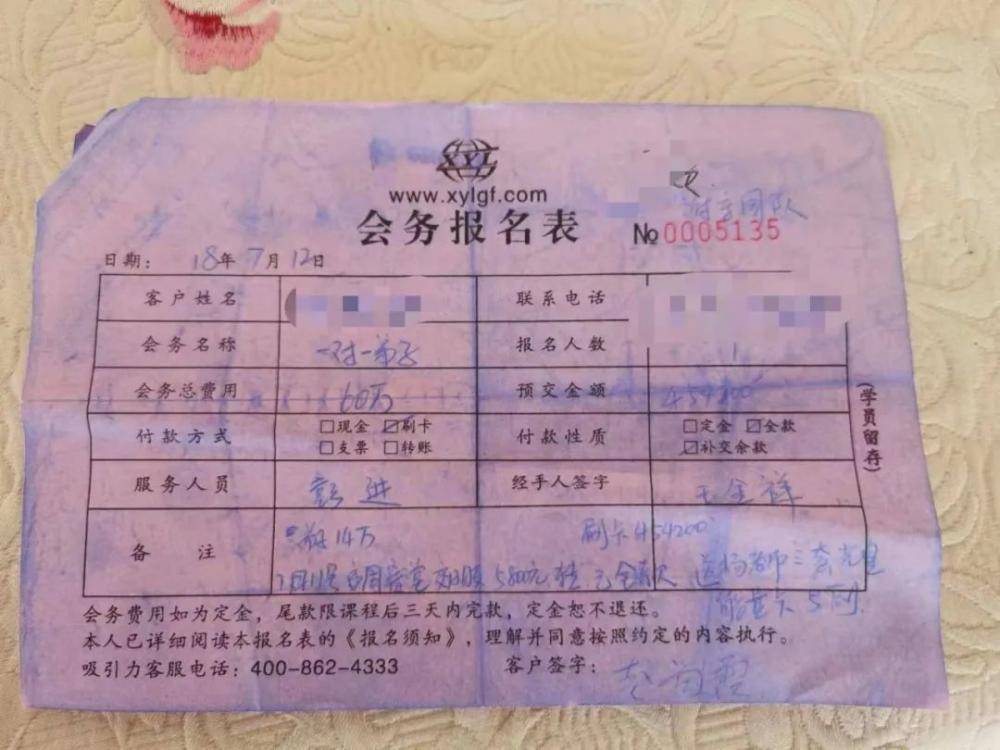 XYL
www.xylgf.com
会务报名表
№0005135
团队
日期： 18年 7月 12日
客户姓名 联系电话
会务名称 一对一弟子 报名人数 1
会务总费用 60万 预交金额 454200
付款方式 □现金 ☑刷卡 □支票 □转账 付款性质 □定金 ☑全款 ☑补交余款
服务人员 彭进 经手人签字 王全祥
备注 14万 刷卡454200
5800元 送杨老师三套光盘
能量卡5
会务费用如为定金，尾款限课程后三天内完款，定金恕不退还。
本人已详细阅读本报名表的《报名须知》，理解并同意按照约定的内容执行。
吸引力客服电话：400-862-4333 客户签字：
(学员留存)